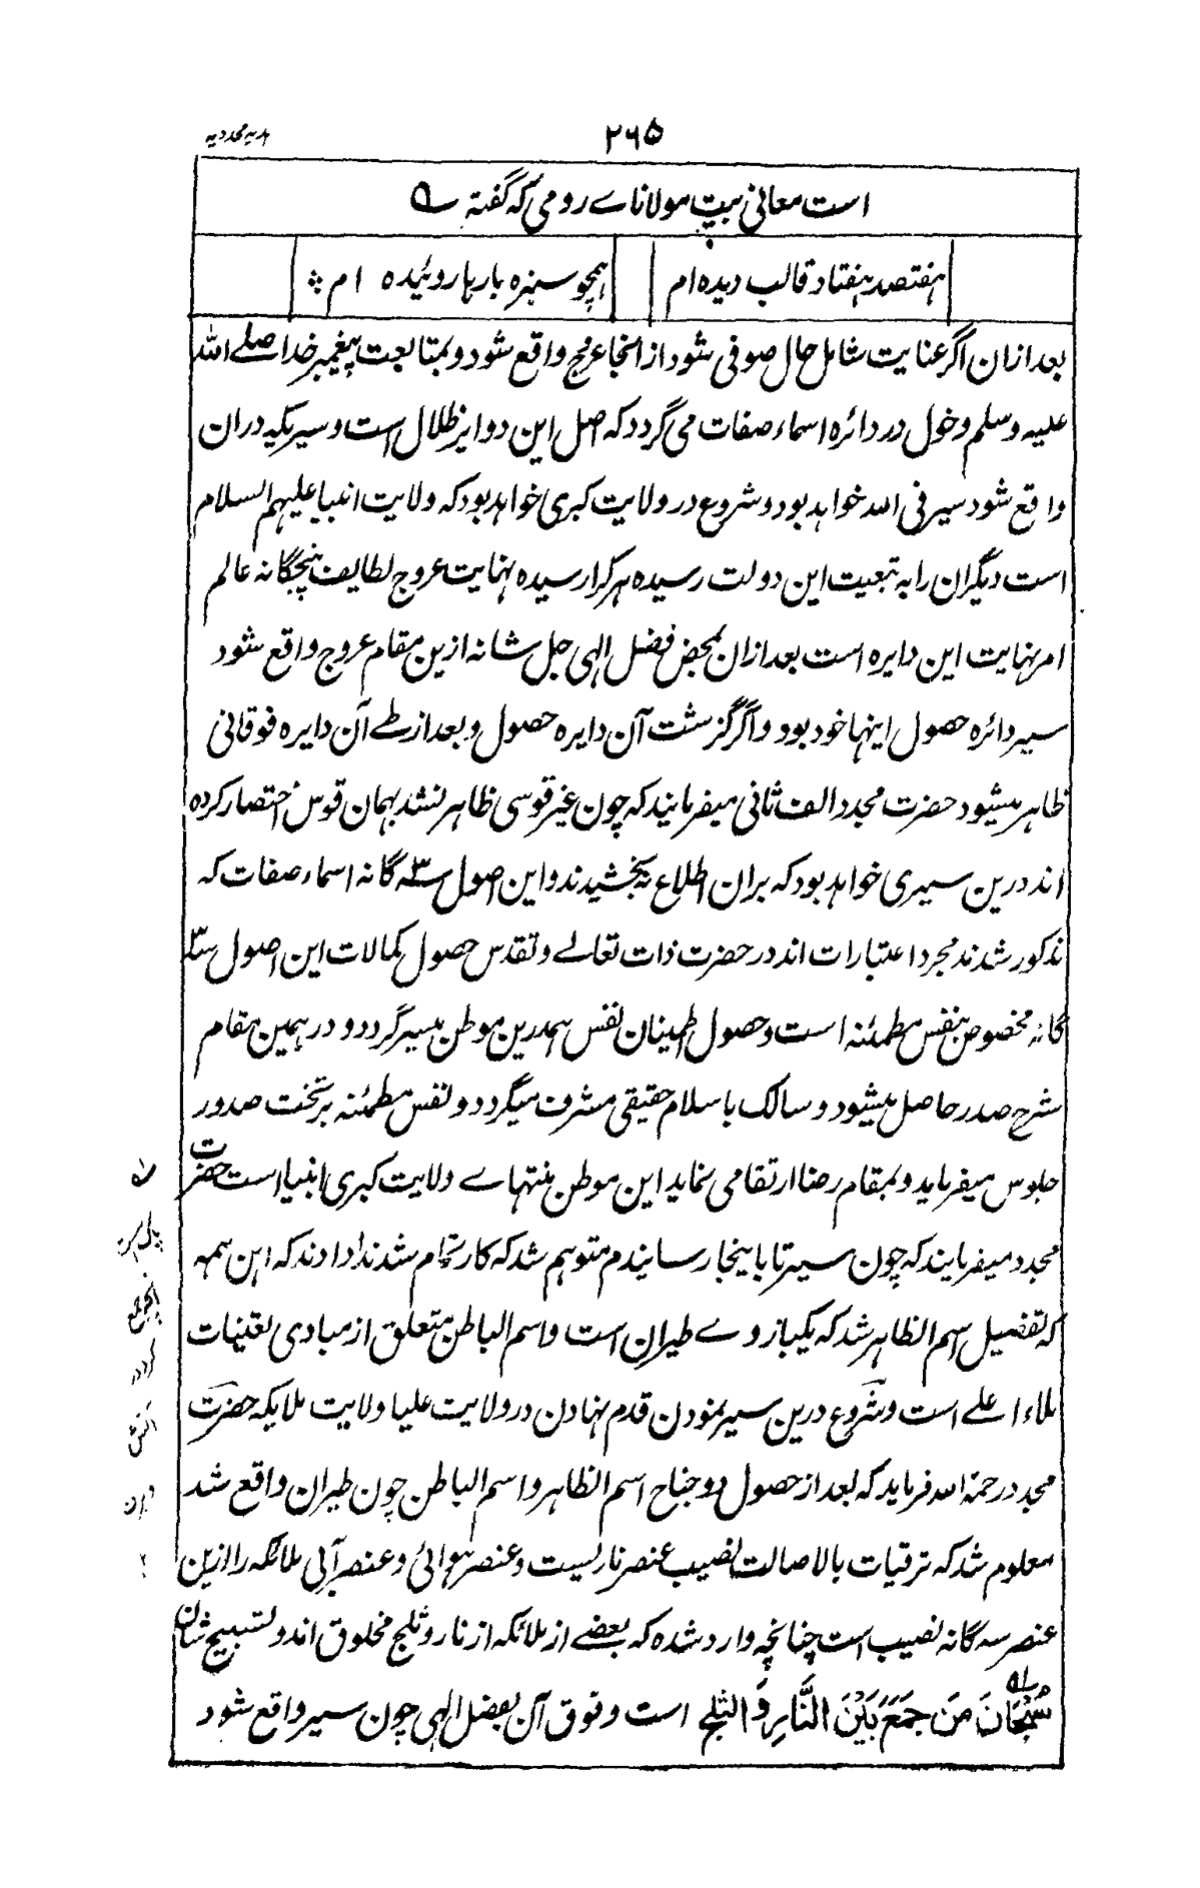 ۲۶۵
است معانی بیت مولانای رومی که گفته
هفتصد هفتاد قالب دیده ام
همچو سبزه بارها روئیده ام
بعد ازان اگر عنایت شامل حال صوفی شود از انجا عروج واقع شود و بمتابعت پیغمبر خدا صلے الله
علیه وسلم دخول در دائره اسماء صفات می گردد که اصل این دوایر ظلال است و سیریکه دران
واقع شود سیر فی الله خواهد بود و شروع در ولایت کبری خواهد بود که ولایت انبیا علیهم السلام
است دیگران را به تبعیت این دولت رسیده هر کرا رسیده نهایت عروج لطایف پنجگانه عالم
امر نهایت این دایره است بعد ازان بمحض فضل الهی جل شانه ازین مقام عروج واقع شود
سیر دائره حصول اینها خود بود و اگر گزشت آن دایره حصول و بعد از طے آن دایره فوقانی
ظاهر میشود حضرت مجدد الف ثانی میفرمایند که چون غیر قوسی ظاهر نشد بهمان قوس اختصار کرده
اند درین سیری خواهد بود که بران اطلاع نبخشیدند و این اصول سه گانه اسماء صفات که
مذکور شدند مجرد اعتبارات اند در حضرت ذات تعالے و تقدس حصول کمالات این اصول سه
گانه مخصوص بنفس مطمئنه است و حصول اطمینان نفس همدرین موطن میسر گردد و در همین مقام
شرح صدر حاصل میشود و سالک باسلام حقیقی مشرف میگردد و نفس مطمئنه بر تخت صدور
جلوس میفرماید و بمقام رضا ارتقا می نماید این موطن منتهاے ولایت کبری انبیا است حضرت
مجدد میفرمایند که چون سیر تا باینجا رسانیدم متوهم شد که کار تمام شد ندا دادند که این همه
که تفصیل اسم الظاهر شد که یکبازوے طیران است و اسم الباطن متعلق از مبادی تعینات
ملاء اعلے است و شروع درین سیر نمودن قدم نهادن در ولایت علیا ولایت ملایکه حضرت
مجدد رحمة الله فرماید که بعد از حصول دو جناح اسم الظاهر و اسم الباطن چون طیران واقع شد
معلوم شد که ترقیات بالاصالت نصیب عنصر ناریست و عنصر هوائی و عنصر آبی ملائکه را ازین
عنصر سه گانه نصیب است چنانچه وارد شده که بعضے از ملائکه از نار و ثلج مخلوق اند و تسبیح شان
سُبْحَانَ مَن جَمَعَ بَیْنَ النَّارِ وَ الثلج است و فوق آن بفضل الهی چون سیر واقع شود